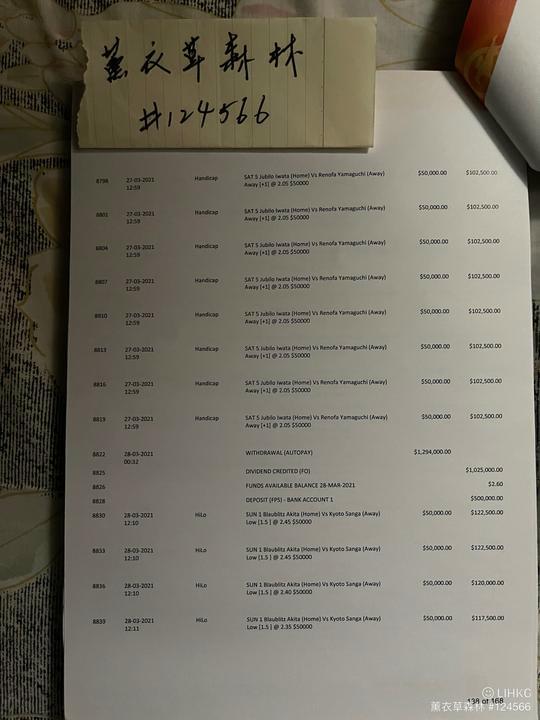 薰衣草森林
#124566
8798 27-03-2021 Handicap SAT 5 Jubilo Iwata (Home) Vs Renofa Yamaguchi (Away) $50,000.00 $102,500.00
12:59 Away [+1] @ 2.05 $50000
8801 27-03-2021 Handicap SAT 5 Jubilo Iwata (Home) Vs Renofa Yamaguchi (Away) $50,000.00 $102,500.00
12:59 Away [+1] @ 2.05 $50000
8804 27-03-2021 Handicap SAT 5 Jubilo Iwata (Home) Vs Renofa Yamaguchi (Away) $50,000.00 $102,500.00
12:59 Away [+1] @ 2.05 $50000
8807 27-03-2021 Handicap SAT 5 Jubilo Iwata (Home) Vs Renofa Yamaguchi (Away) $50,000.00 $102,500.00
12:59 Away [+1] @ 2.05 $50000
8810 27-03-2021 Handicap SAT 5 Jubilo Iwata (Home) Vs Renofa Yamaguchi (Away) $50,000.00 $102,500.00
12:59 Away [+1] @ 2.05 $50000
8813 27-03-2021 Handicap SAT 5 Jubilo Iwata (Home) Vs Renofa Yamaguchi (Away) $50,000.00 $102,500.00
12:59 Away [+1] @ 2.05 $50000
8816 27-03-2021 Handicap SAT 5 Jubilo Iwata (Home) Vs Renofa Yamaguchi (Away) $50,000.00 $102,500.00
12:59 Away [+1] @ 2.05 $50000
8819 27-03-2021 Handicap SAT 5 Jubilo Iwata (Home) Vs Renofa Yamaguchi (Away) $50,000.00 $102,500.00
12:59 Away [+1] @ 2.05 $50000
8822 28-03-2021 WITHDRAWAL (AUTOPAY) $1,294,000.00
00:32
8825 DIVIDEND CREDITED (FO) $1,025,000.00
8826 FUNDS AVAILABLE BALANCE 28-MAR-2021 $2.60
8828 DEPOSIT (FPS) - BANK ACCOUNT 1 $500,000.00
8830 28-03-2021 HiLo SUN 1 Blaublitz Akita (Home) Vs Kyoto Sanga (Away) $50,000.00 $122,500.00
12:10 Low [1.5 ] @ 2.45 $50000
8833 28-03-2021 HiLo SUN 1 Blaublitz Akita (Home) Vs Kyoto Sanga (Away) $50,000.00 $122,500.00
12:10 Low [1.5 ] @ 2.45 $50000
8836 28-03-2021 HiLo SUN 1 Blaublitz Akita (Home) Vs Kyoto Sanga (Away) $50,000.00 $120,000.00
12:10 Low [1.5 ] @ 2.40 $50000
8839 28-03-2021 HiLo SUN 1 Blaublitz Akita (Home) Vs Kyoto Sanga (Away) $50,000.00 $117,500.00
12:11 Low [1.5 ] @ 2.35 $50000
LIHKG
138 of 168
薰衣草森林 #124566